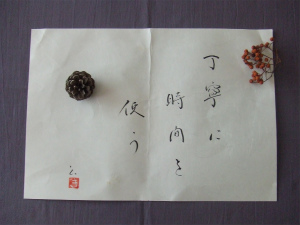 丁寧に
時間を
使う